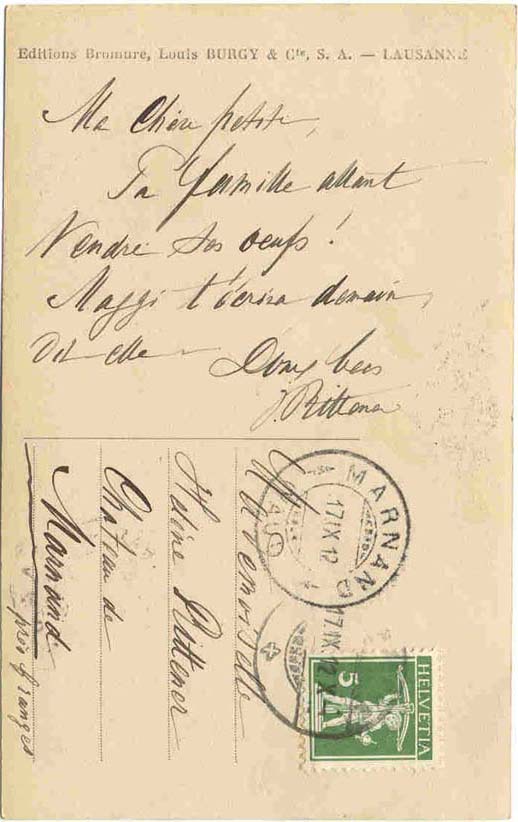 Editions Bromure, Louis BURGY & Cie, S. A. — LAUSANNE
Ma Chère petite,
Ta famille allant
Vendre ses oeufs !
Maggi t'écrira demain,
dit-elle
Doux bees
J. Rittener
Mademoiselle
Hélène Rittener
Château de
Marnand
près Granges
MARNAND
17 IX 12
VAUD
17 IX 12 XI
HELVETIA
5